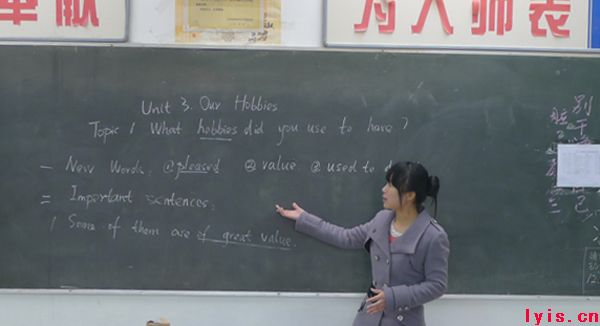 奉献
为人师表
Unit 3. Our Hobbies
Topic 1 What hobbies did you use to have?
一 New Words: ①pleased ②value ③used to d
二 Important sentences:
1 Some of them are of great value.
别
lyis.cn